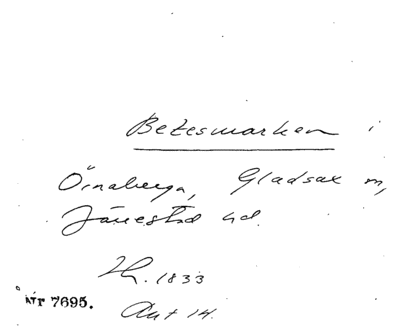 Betesmarken i
Örnaberga, Gladsax m,
Järrestad hd.
Th. 1833
Nr 7695.
Akt 14.